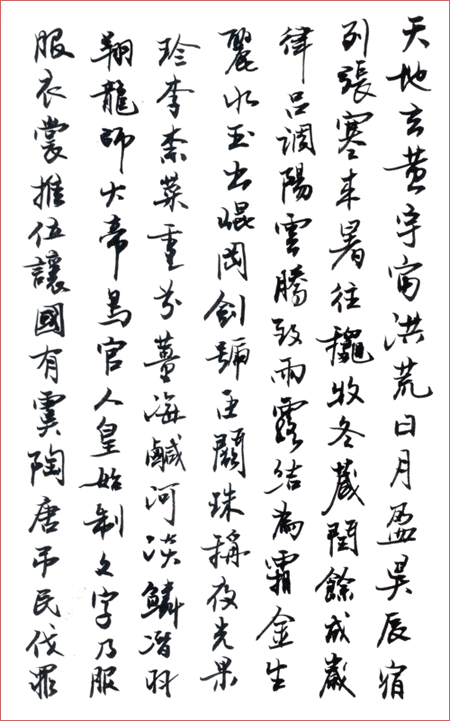 天地玄黃宇宙洪荒日月盈昃辰宿
列張寒來暑往穐收冬藏閏餘成歲
律呂調陽雲騰致雨露結為霜金生
麗水玉出崐岡劍號巨闕珠稱夜光果
珍李柰菜重芥薑海鹹河淡鱗潛羽
翔龍師火帝鳥官人皇始制文字乃服
服衣裳推位讓國有虞陶唐弔民伐罪